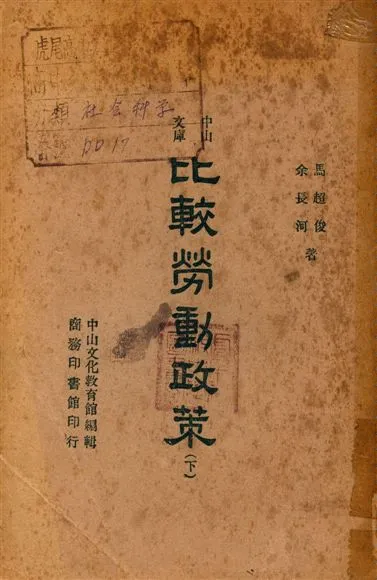 虎尾
分類 社会科学
中山
文庫
比較勞動政策(下)
馬超俊
余長河
著
中山文化敎育館編輯
商務印書館印行